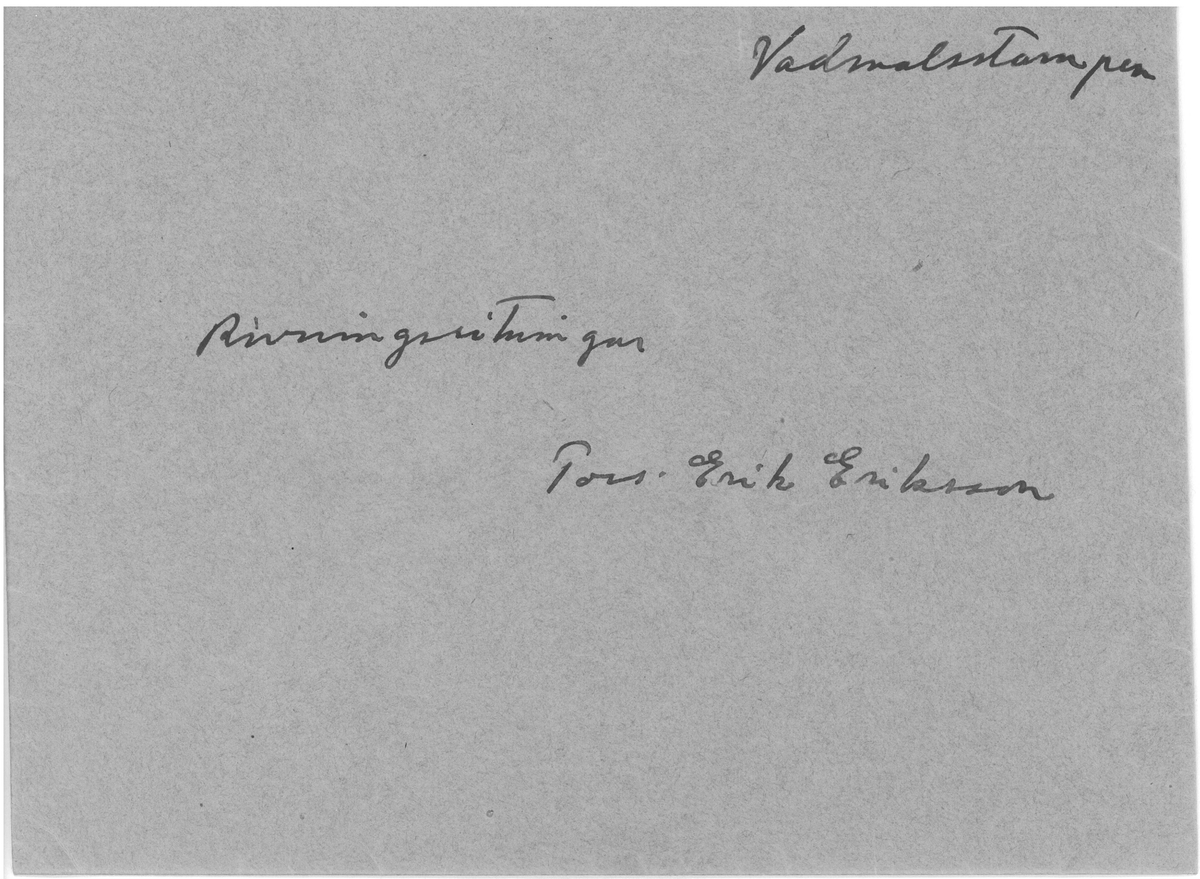 Vadmalsstampen
Rivningsritningar
Tors. Erik Eriksson